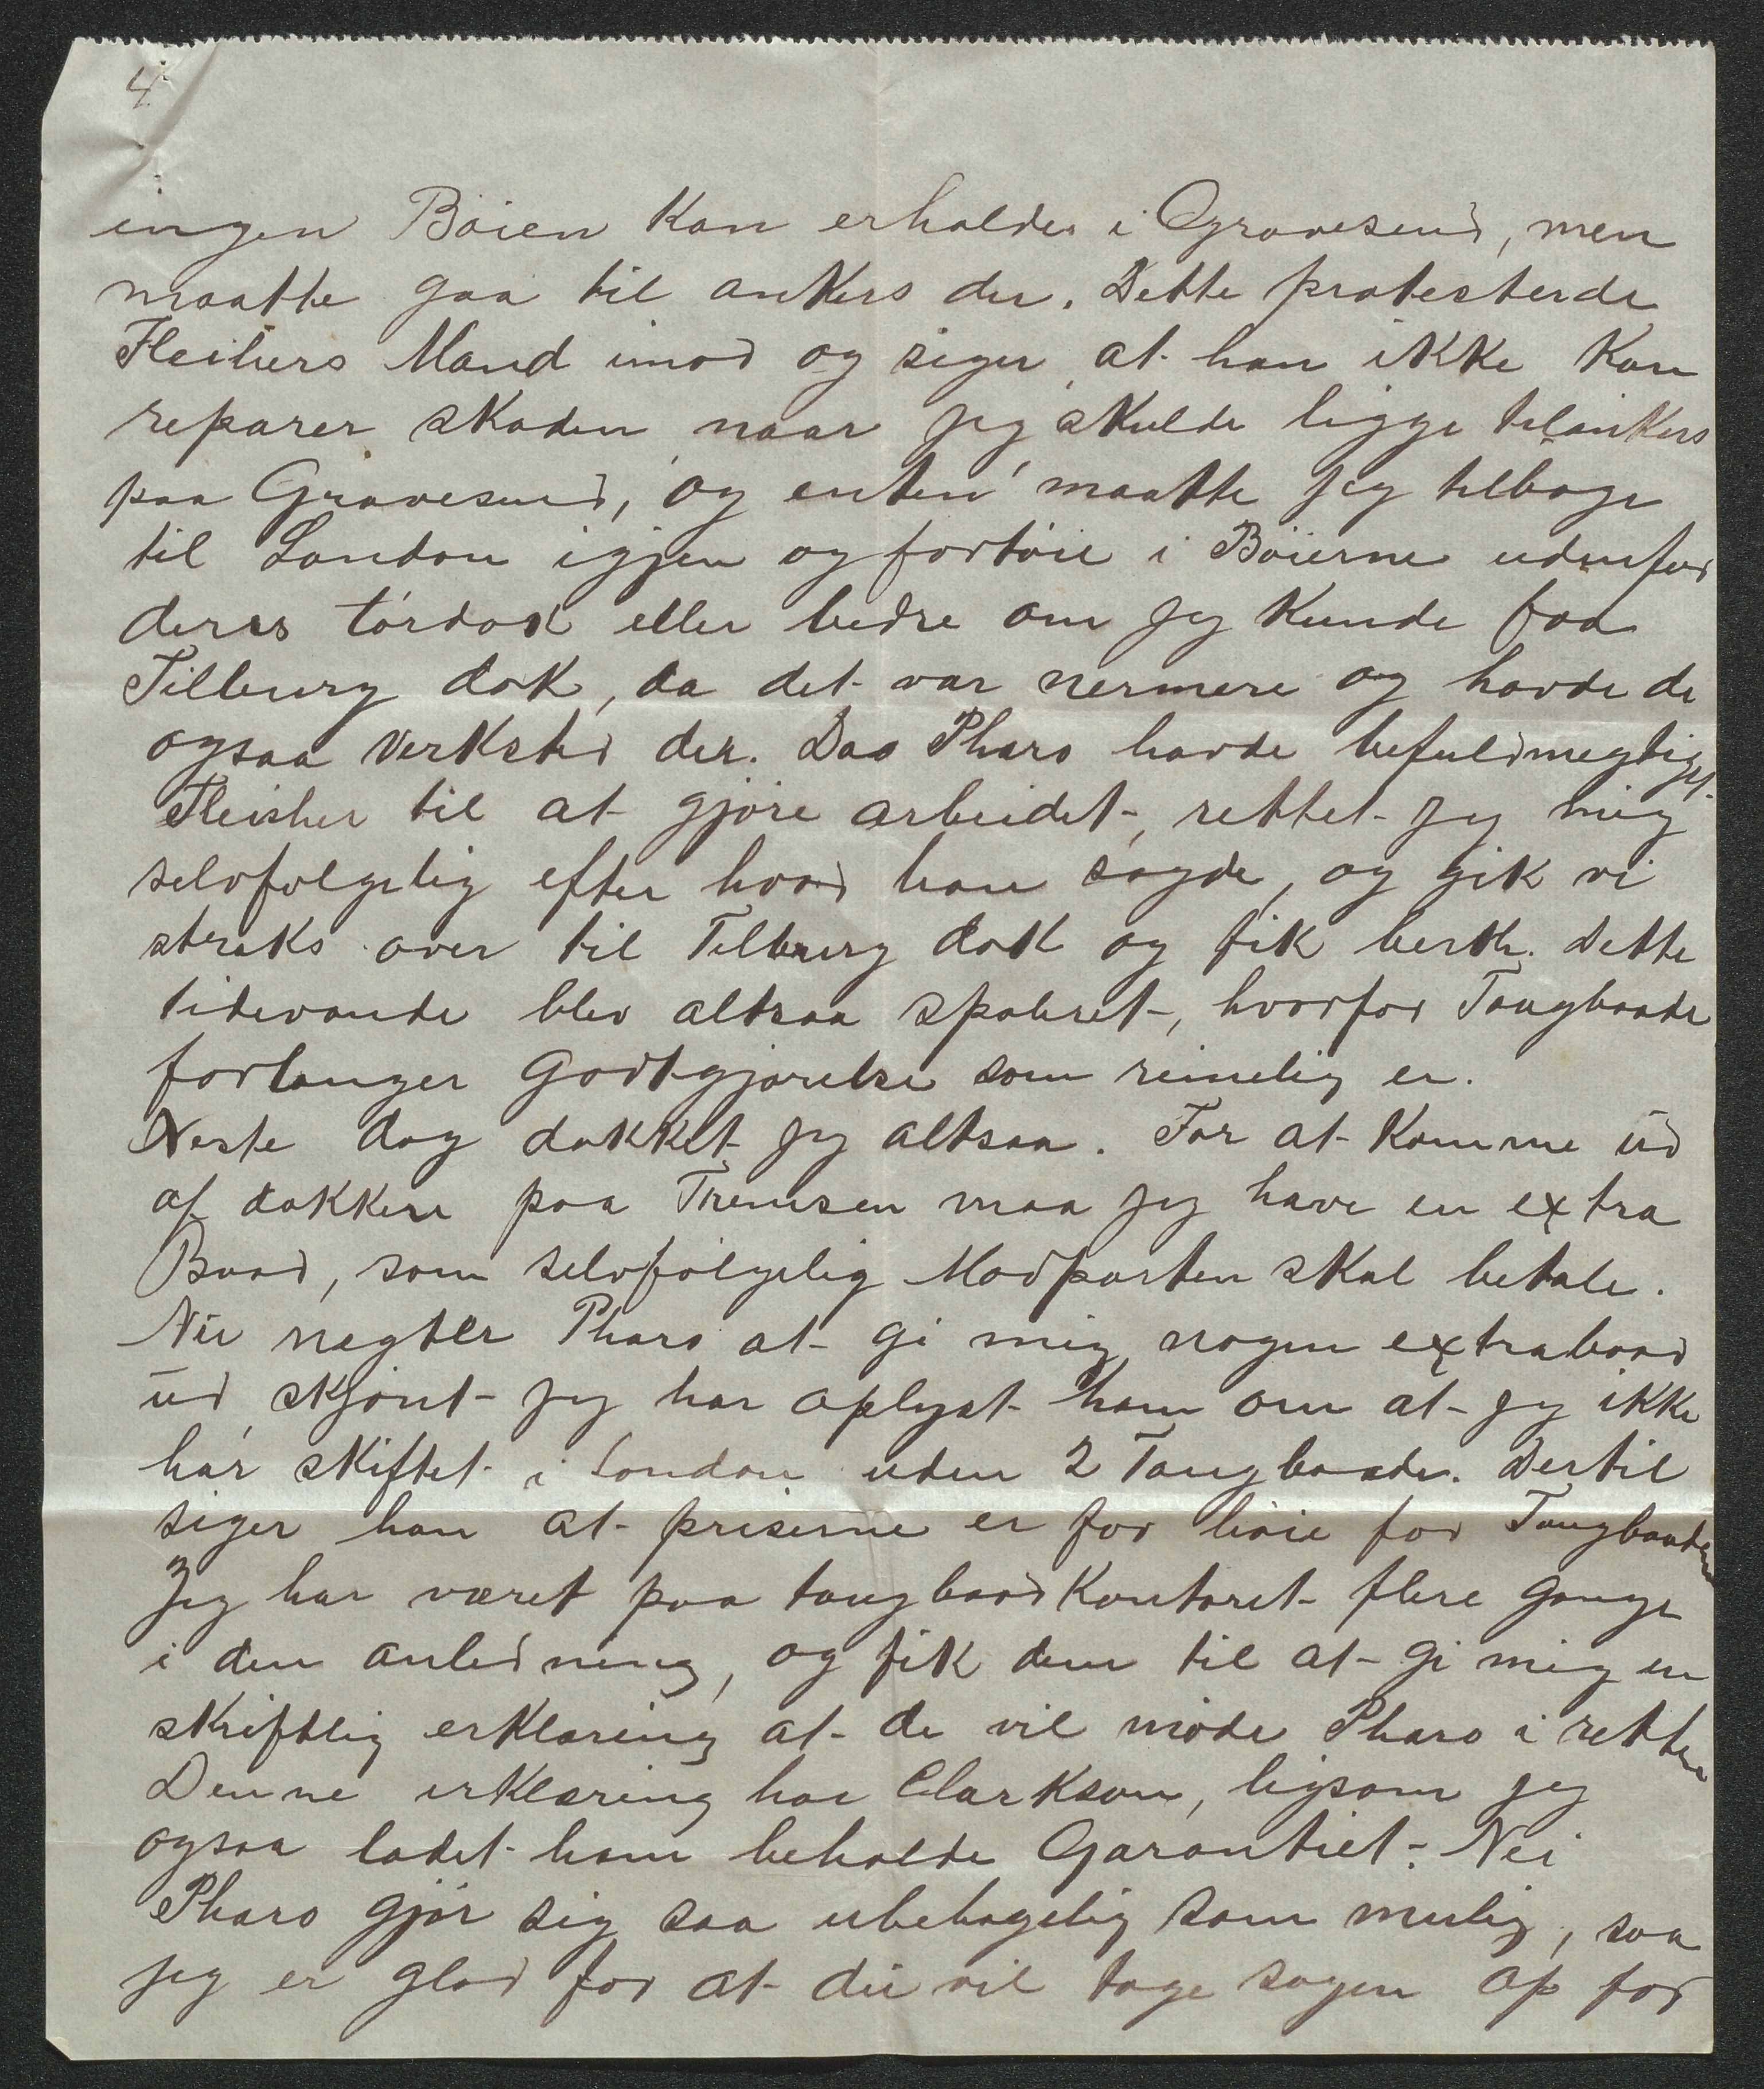 4
ingen Böien kan erholdes i Gravesend, men
maatte gaa til ankers der. Dette protesterde
Fleihers Mand imod og siger at han ikke kan
reparer skaden naar jeg skulde ligge tilankers
paa Gravesend, og enten maatte jeg tilbage
til London igjen og fortöie i Böierne udenfor
deres tördok eller bedre om jeg kunde faa
Tilbury dok, da det var nermere og havde de
ogsaa verksted der. Das Pharo havde befuldmegtiget
Fleisher til at gjöre arbeidet, rettet jeg mig
selvfolgelig efter hvad han sagde, og gik vi
straks over til Tilbury dok og fik berth. Dette
tidevande blev altsaa spoleret, hvorfor Taugbaade
forlanger Godtgjörelse som rimelig er.
Neste dag dokket jeg altsaa. For at komme ud
af dokken paa Themsen maa jeg have en extra
Baad, som selvfölgelig Modparten skal betale.
Nu negter Pharo at gi mig nogen extrabaad
ud skjönt jeg har oplyst ham om at jeg ikke
har skiftet i London uden 2 Taugbaade. Dertil
siger han at priserne er for höie for Taugbaadene
Jeg har været paa taugbaadkontoret flere gange
i den anledning, og fik dem til at gi mig en
skriftlig erklæring at de vil möde Pharo i retten
Denne erklæring har Clarkson, ligsom jeg
ogsaa ladet ham beholde Garantiet. Nei
Pharo gjör sig saa ubehagelig som mulig, saa
jeg er glad for at du vil tage sagen op for